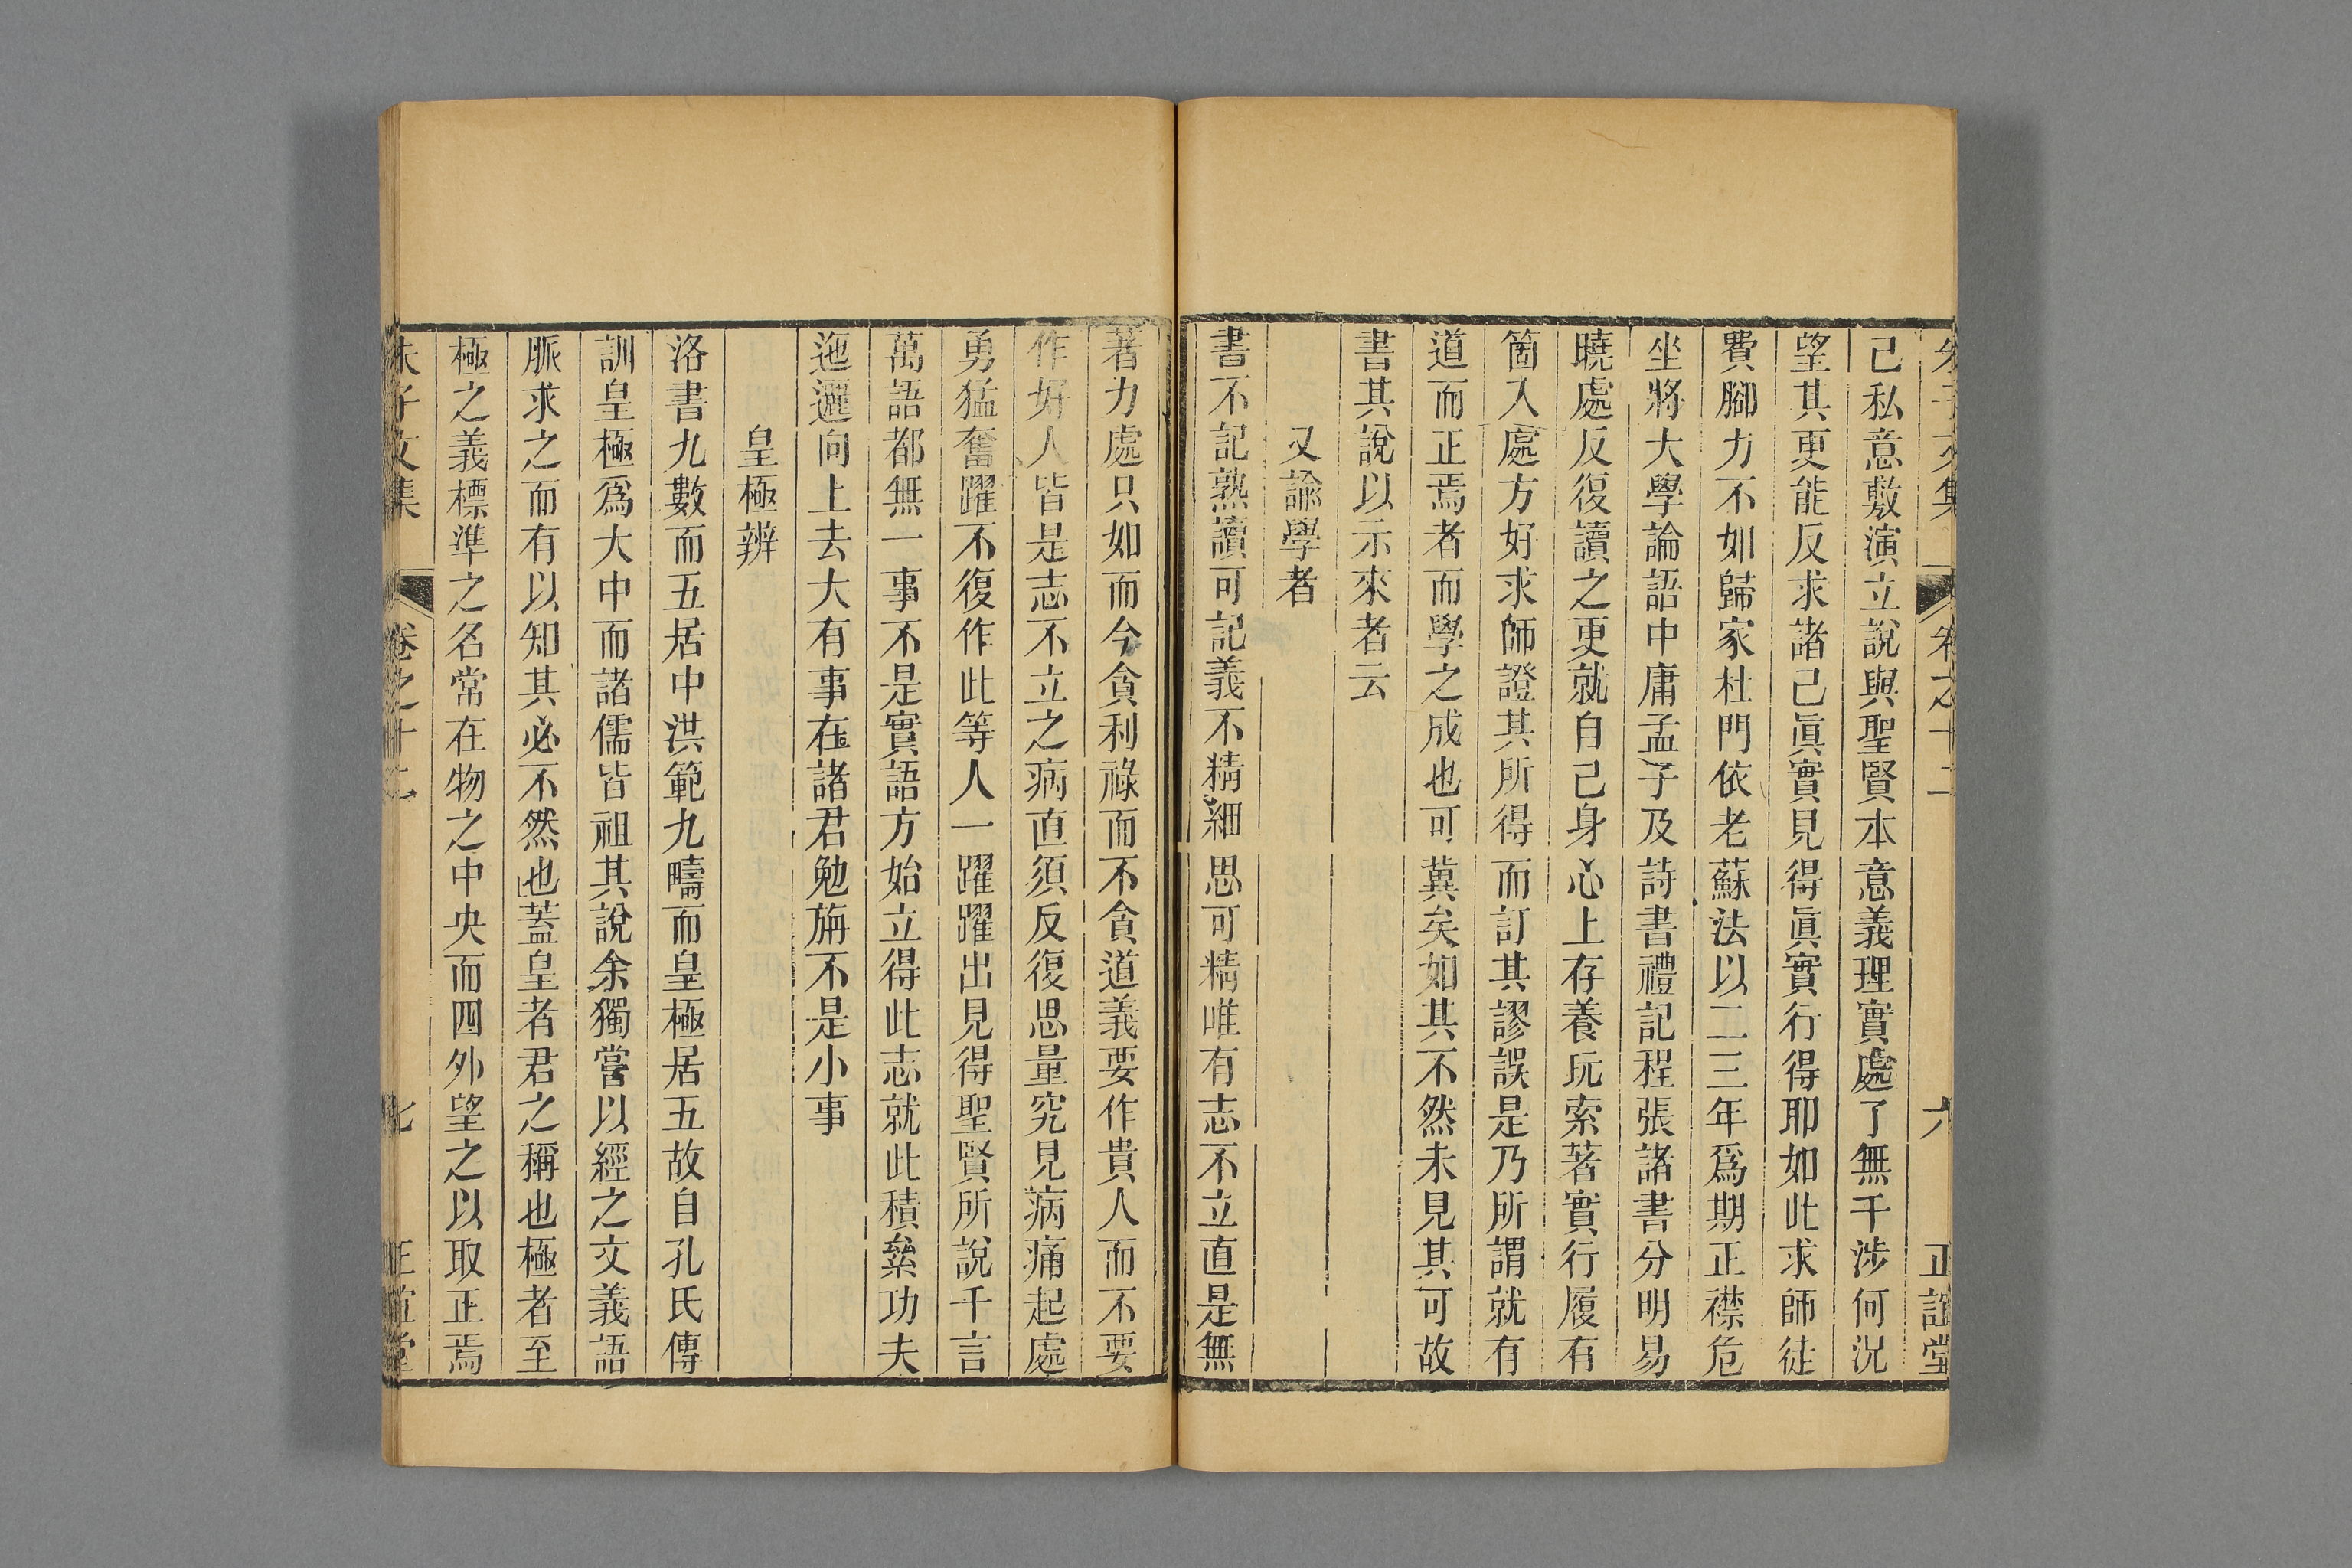 朱子文集 卷之十二 六 正誼堂
己私意敷演立說與聖賢本意義理實處了無干涉何況
望其更能反求諸己眞實見得眞實行得耶如此求師徒
費腳力不如歸家杜門依老蘇法以二三年爲期正襟危
坐將大學論語中庸孟子及詩書禮記程張諸書分明易
曉處反復讀之更就自己身心上存養玩索著實行履有
箇入處方好求師證其所得而訂其謬誤是乃所謂就有
道而正焉者而學之成也可冀矣如其不然未見其可故
書其說以示來者云
又諭學者
書不記熟讀可記義不精細思可精唯有志不立直是無
著力處只如而今貪利祿而不貪道義要作貴人而不要
作好人皆是志不立之病直須反復思量究見病痛起處
勇猛奮躍不復作此等人一躍躍出見得聖賢所說千言
萬語都無一事不是實語方始立得此志就此積絫功夫
迤邐向上去大有事在諸君勉旃不是小事
皇極辨
洛書九數而五居中洪範九疇而皇極居五故自孔氏傳
訓皇極爲大中而諸儒皆祖其說余獨嘗以經之文義語
脈求之而有以知其必不然也蓋皇者君之稱也極者至
極之義標準之名常在物之中央而四外望之以取正焉
朱子文集 卷之十二 七 正誼堂